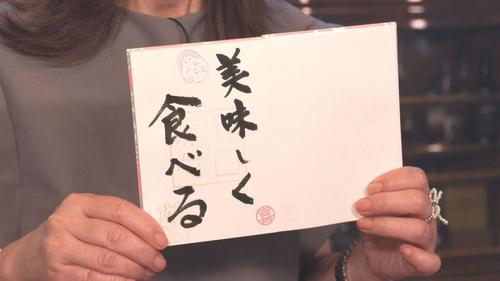 美味しく
食べる